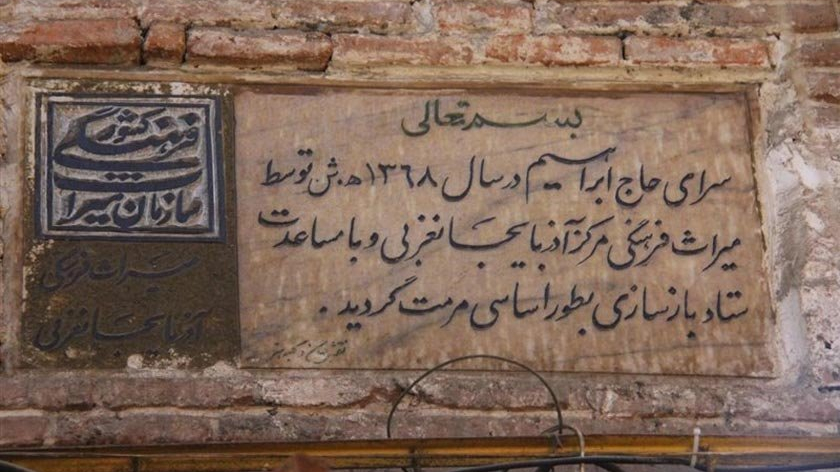 بسمه تعالی
سرای حاج ابراهیم در سال ۱۳۶۸ ه.ش توسط
میراث فرهنگی مرکز آذربایجانغربی و با مساعدت
ستاد بازسازی بطور اساسی مرمت گردید .
سازمان میراث
فرهنگی کشور
میراث فرهنگی
آذربایجانغربی